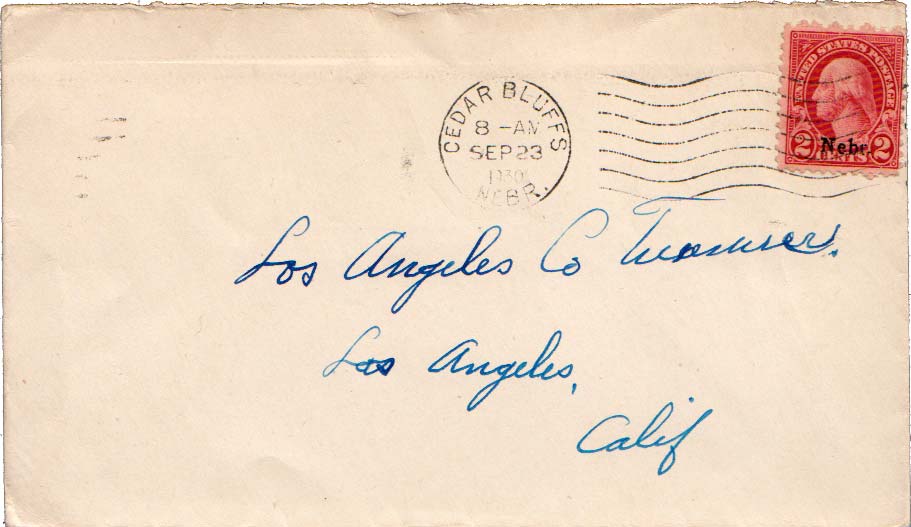 CEDAR BLUFFS
8 - AM
SEP 23
1930
NEBR.
UNITED STATES POSTAGE
2 Nebr. 2
Los Angeles Co Treasurer.
Los Angeles,
Calif